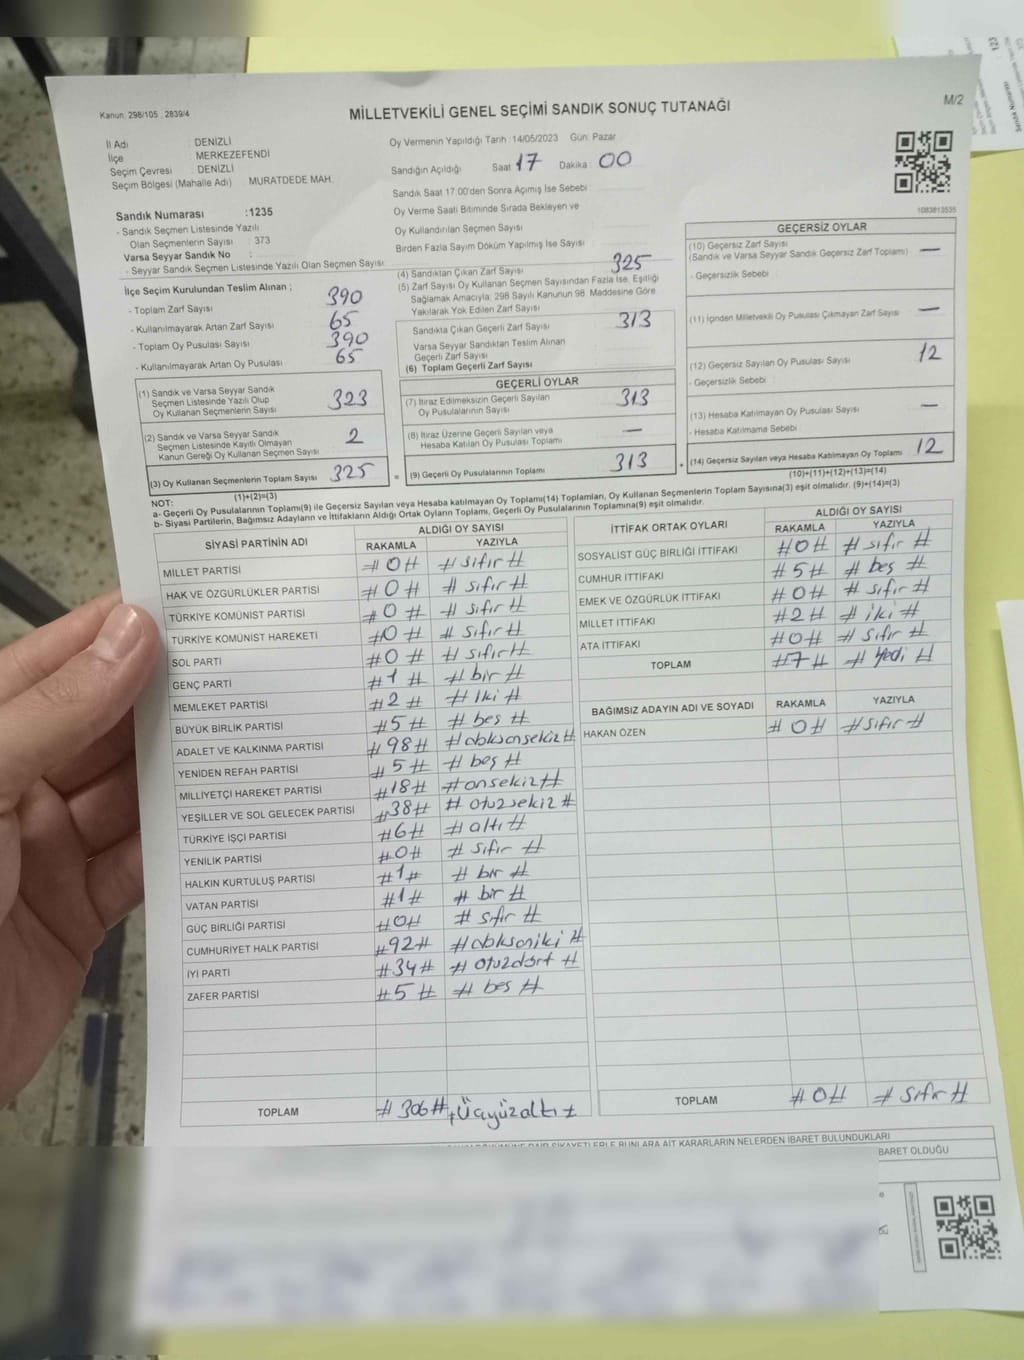 Kanun: 298/105 , 2839/4
MİLLETVEKİLİ GENEL SEÇİMİ SANDIK SONUÇ TUTANAĞI
M/2
İl Adı : DENİZLİ
İlçe : MERKEZEFENDİ
Seçim Çevresi : DENİZLİ
Seçim Bölgesi (Mahalle Adı) MURATDEDE MAH.
Sandık Numarası :1235
- Sandık Seçmen Listesinde Yazılı
Olan Seçmenlerin Sayısı : 373
Varsa Seyyar Sandık No :
- Seyyar Sandık Seçmen Listesinde Yazılı Olan Seçmen Sayısı:
Oy Vermenin Yapıldığı Tarih : 14/05/2023 Gün: Pazar
Sandığın Açıldığı Saat 17 Dakika : 00
Sandık Saat 17:00'den Sonra Açımış İse Sebebi
Oy Verme Saati Bitiminde Sırada Bekleyen ve
Oy Kullandırılan Seçmen Sayısı
Birden Fazla Sayım Döküm Yapılmış İse Sayısı
1083813535
İlçe Seçim Kurulundan Teslim Alınan ;
- Toplam Zarf Sayısı 390
- Kullanılmayarak Artan Zarf Sayısı 65
- Toplam Oy Pusulası Sayısı 390
- Kullanılmayarak Artan Oy Pusulası 65
(1) Sandık ve Varsa Seyyar Sandık
Seçmen Listesinde Yazılı Olup
Oy Kullanan Seçmenlerin Sayısı 323
(2) Sandık ve Varsa Seyyar Sandık
Seçmen Listesinde Kayıtlı Olmayan
Kanun Gereği Oy Kullanan Seçmen Sayısı 2
(3) Oy Kullanan Seçmenlerin Toplam Sayısı 325
(1)+(2)=(3)
(4) Sandıktan Çıkan Zarf Sayısı 325
(5) Zarf Sayısı Oy Kullanan Seçmen Sayısından Fazla İse, Eşitliği
Sağlamak Amacıyla; 298 Sayılı Kanunun 98. Maddesine Göre
Yakılarak Yok Edilen Zarf Sayısı
Sandıkta Çıkan Geçerli Zarf Sayısı 313
Varsa Seyyar Sandıktan Teslim Alınan
Geçerli Zarf Sayısı
(6) Toplam Geçerli Zarf Sayısı
GEÇERLİ OYLAR
(7) İtiraz Edilmeksizin Geçerli Sayılan
Oy Pusulalarının Sayısı 313
(8) İtiraz Üzerine Geçerli Sayılan veya
Hesaba Katılan Oy Pusulası Toplamı —
= (9) Geçerli Oy Pusulalarının Toplamı 313
GEÇERSİZ OYLAR
(10) Geçersiz Zarf Sayısı —
(Sandık ve Varsa Seyyar Sandık Geçersiz Zarf Toplamı)
- Geçersizlik Sebebi :
(11) İçinden Milletvekili Oy Pusulası Çıkmayan Zarf Sayısı —
(12) Geçersiz Sayılan Oy Pusulası Sayısı 12
- Geçersizlik Sebebi :
(13) Hesaba Katılmayan Oy Pusulası Sayısı —
- Hesaba Katılmama Sebebi :
+ (14) Geçersiz Sayılan veya Hesaba Katılmayan Oy Toplamı 12
(10)+(11)+(12)+(13)=(14)
NOT:
a- Geçerli Oy Pusulalarının Toplamı(9) ile Geçersiz Sayılan veya Hesaba katılmayan Oy Toplamı(14) Toplamları, Oy Kullanan Seçmenlerin Toplam Sayısına(3) eşit olmalıdır. (9)+(14)=(3)
b- Siyasi Partilerin, Bağımsız Adayların ve İttifakların Aldığı Ortak Oyların Toplamı, Geçerli Oy Pusulalarının Toplamına(9) eşit olmalıdır.
SİYASİ PARTİNİN ADI ALDIĞI OY SAYISI
RAKAMLA YAZIYLA
MİLLET PARTİSİ #0# #sıfır#
HAK VE ÖZGÜRLÜKLER PARTİSİ #0# #sıfır#
TÜRKİYE KOMÜNİST PARTİSİ #0# #sıfır#
TÜRKİYE KOMÜNİST HAREKETİ #0# #sıfır#
SOL PARTİ #0# #sıfır#
GENÇ PARTİ #1# #bir#
MEMLEKET PARTİSİ #2# #iki#
BÜYÜK BİRLİK PARTİSİ #5# #beş#
ADALET VE KALKINMA PARTİSİ #98# #doksansekiz#
YENİDEN REFAH PARTİSİ #5# #beş#
MİLLİYETÇİ HAREKET PARTİSİ #18# #onsekiz#
YEŞİLLER VE SOL GELECEK PARTİSİ #38# #otuzsekiz#
TÜRKİYE İŞÇİ PARTİSİ #6# #altı#
YENİLİK PARTİSİ #0# #sıfır#
HALKIN KURTULUŞ PARTİSİ #1# #bir#
VATAN PARTİSİ #1# #bir#
GÜÇ BİRLİĞİ PARTİSİ #0# #sıfır#
CUMHURİYET HALK PARTİSİ #92# #doksaniki#
İYİ PARTİ #34# #otuzdört#
ZAFER PARTİSİ #5# #beş#
TOPLAM #306# #Üçyüzaltı#
İTTİFAK ORTAK OYLARI ALDIĞI OY SAYISI
RAKAMLA YAZIYLA
SOSYALİST GÜÇ BİRLİĞİ İTTİFAKI #0# #sıfır#
CUMHUR İTTİFAKI #5# #beş#
EMEK VE ÖZGÜRLÜK İTTİFAKI #0# #sıfır#
MİLLET İTTİFAKI #2# #iki#
ATA İTTİFAKI #0# #sıfır#
TOPLAM #7# #Yedi#
BAĞIMSIZ ADAYIN ADI VE SOYADI RAKAMLA YAZIYLA
HAKAN ÖZEN #0# #sıfır#
TOPLAM #0# #sıfır#
ŞİKAYETLERLE BUNLARA AİT KARARLARIN NELERDEN İBARET BULUNDUKLARI
BARET OLDUĞU